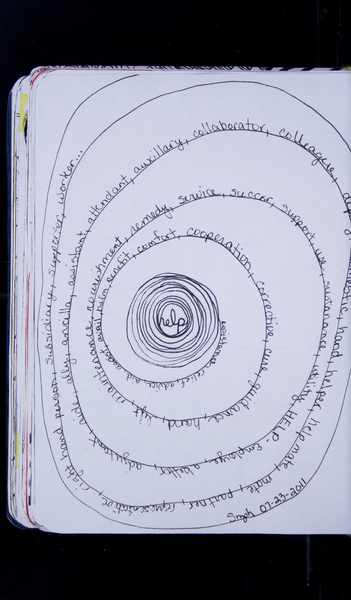 help
assistance, relief, advice, aid, assist, avail, balm, benefit, comfort, cooperation, corrective, cure, guidance, hand, lift, maintenance, nourishment, remedy, service, succor, support, use, sustanance, utility, HELP employee, abetter, adjutant, aide, ally, ancilla, assistant, attendant, auxillary, collaborator, colleague, dep mestic, hand, helper, help mate, mate, partner, representative, right hand person, subsidiary, supporter, worker...
07-23-2011